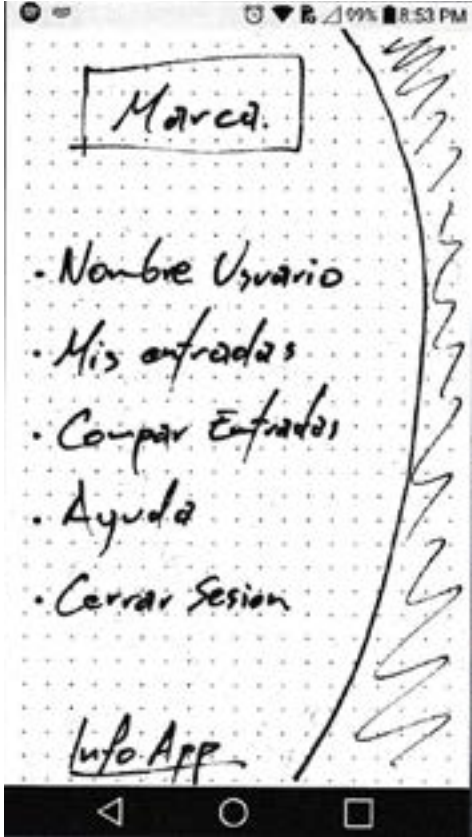 99% 8:53 PM
Marca.
· Nombre Usuario
· Mis entradas
· Compar Entradas
· Ayuda
· Cerrar Sesion
Info App